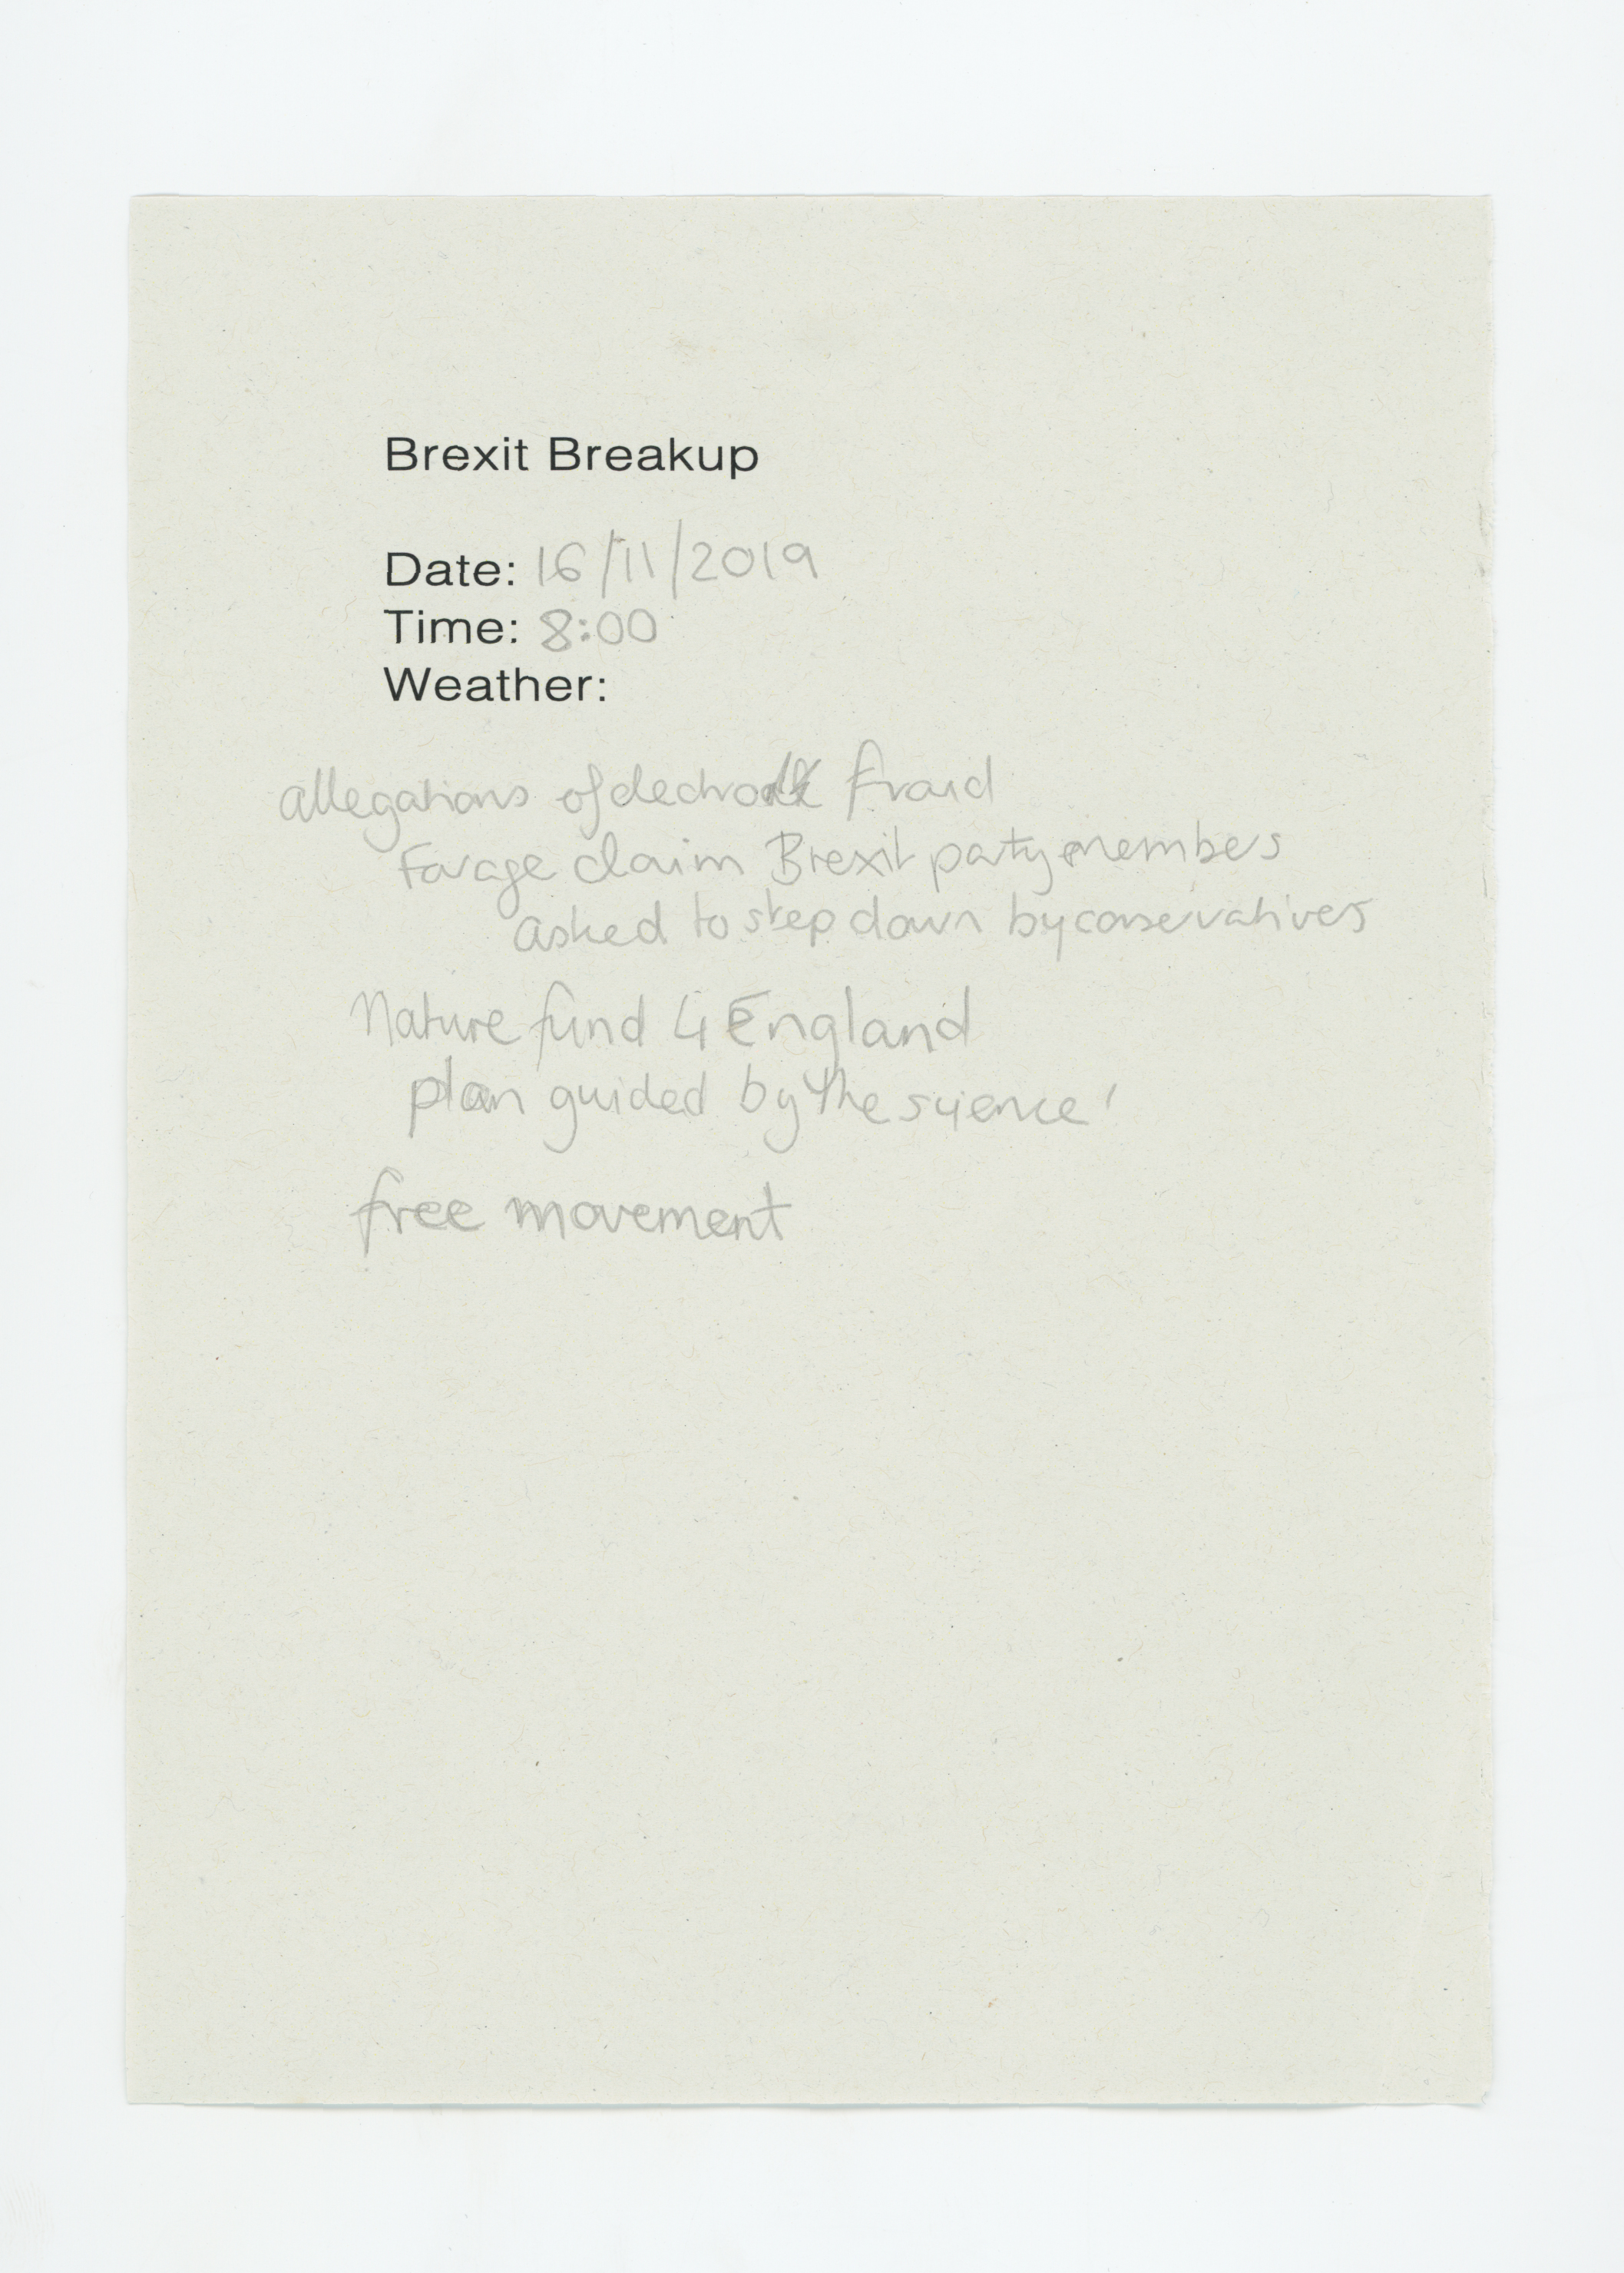 Brexit Breakup
Date: 16/11/2019
Time: 8:00
Weather:
allegations of fraud
Farage claim Brexit party members
asked to step down by conservatives
Nature fund 4 England
plan guided by the science'
free movement